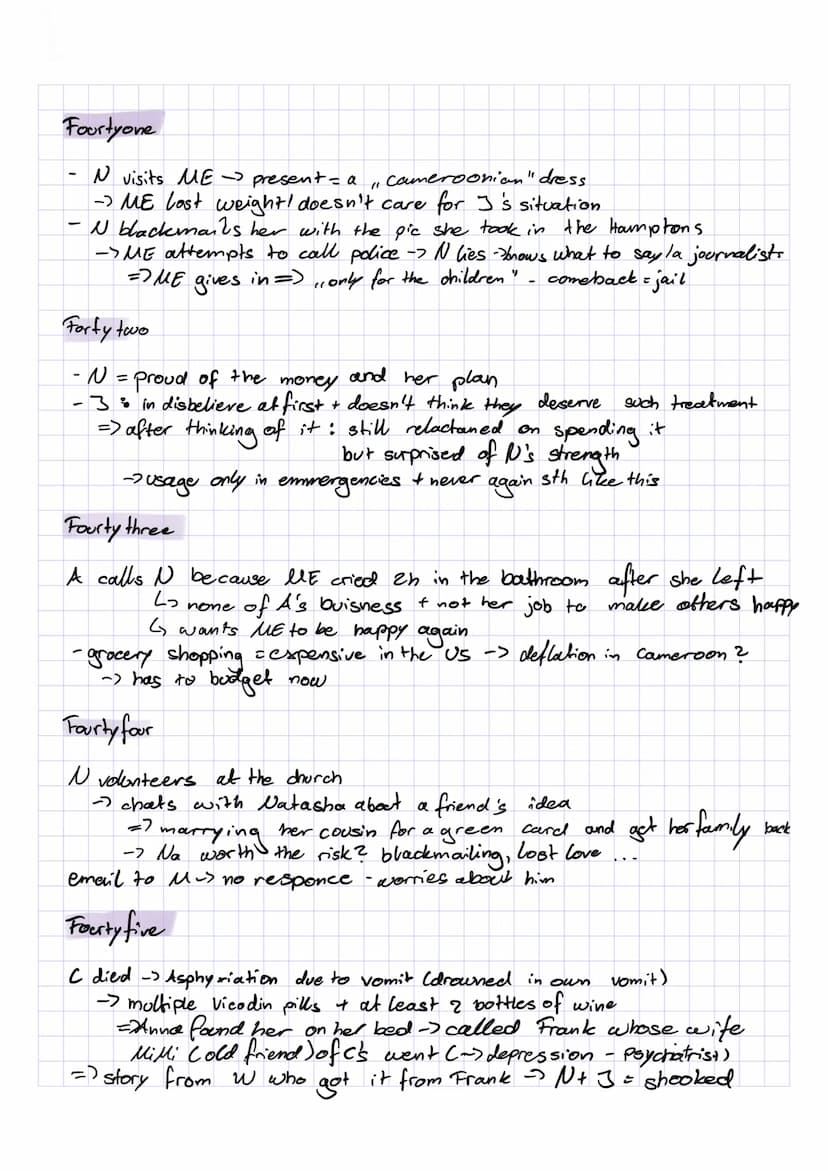 Fourtyone
- N visits ME -> present = a „cameroonian" dress
-> ME lost weight / doesn't care for J's situation
- N blackmails her with the pic she took in the Hamptons
-> ME attempts to call police -> N lies -> knows what to say / a journalist
=> ME gives in => „only for the children" - comeback = jail
Forty two
- N = proud of the money and her plan
- J : in disbelieve at first + doesn't think they deserve such treatment
=> after thinking of it : still relactaned on spending it
but surprised of N's strength
-> usage only in emmergencies + never again sth like this
Fourty three
A calls N because ME cried 2h in the bathroom after she left
↳ none of A's buisness + not her job to make others happy
↳ wants ME to be happy again
- grocery shopping = expensive in the US -> deflation in Cameroon?
-> has to budget now
Fourty four
N volunteers at the church
-> chats with Natasha about a friend's idea
=> marrying her cousin for a green card and get her family back
-> Na worth the risk? blackmailing, lost love ...
email to M -> no responce - worries about him
Fourty five
C died -> Asphyxiation due to vomit (drowned in own vomit)
-> multiple Vicodin pills + at least 2 bottles of wine
=> Anna found her on her bed -> called Frank whose wife
MiMi (old friend) of C's went (-> depression - Psychatrist)
=> story from W who got it from Frank -> N + J = shooked